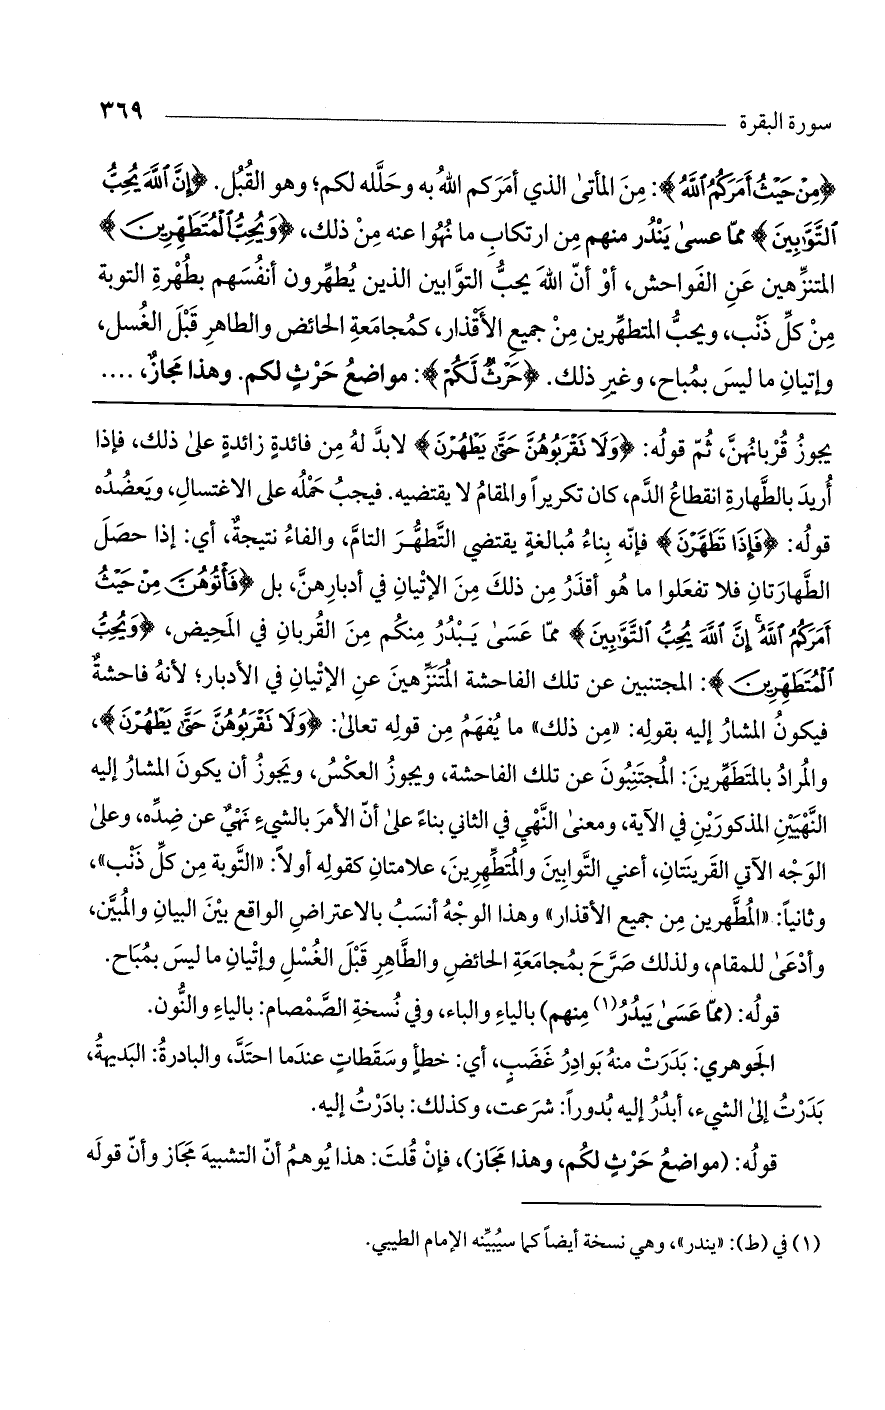 سورة البقرة ٣٦٩
﴿مِنْ حَيْثُ أَمَرَكُمُ ٱللَّهُ﴾: مِنَ المأتىٰ الذي أمَرَكم اللهُ به وحَلَّله لكم؛ وهو القُبُل. ﴿إِنَّ ٱللَّهَ يُحِبُّ
ٱلتَّوَّٰبِينَ﴾ ممّا عسىٰ يَنْدُر منهم مِن ارتكابِ ما نُهُوا عنه مِنْ ذلك، ﴿وَيُحِبُّ ٱلْمُتَطَهِّرِينَ﴾
المتنزِّهين عَنِ الفَواحش، أوْ أنّ اللهَ يحبُّ التوَّابين الذين يُطهِّرون أنفُسَهم بطُهْرةِ التوبة
مِنْ كلِّ ذَنْب، ويحبُّ المتطهِّرين مِنْ جميعِ الأَقْذار، كمُجامَعةِ الحائض والطاهرِ قَبْلَ الغُسل،
وإتيانِ ما ليسَ بمُباح، وغيرِ ذلك. ﴿حَرْثٌ لَّكُمْ﴾: مواضعُ حَرْثٍ لكم. وهذا مَجازٌ، ....
يجوزُ قُربانُهنَّ، ثُمّ قولُه: ﴿وَلَا نَقْرَبُوهُنَّ حَتَّىٰ يَطْهُرْنَ﴾ لابدَّ لهُ مِن فائدةٍ زائدةٍ علىٰ ذلك، فإذا
أُريدَ بالطَّهارةِ انقطاعُ الدَّم، كان تكريراً والمقامُ لا يقتضيه. فيجبُ حَمْلُه على الاغتسالِ، ويَعضُدُه
قولُه: ﴿فَإِذَا تَطَهَّرْنَ﴾ فإنّه بِناءُ مُبالغةٍ يقتضي التَّطهُّرَ التامَّ، والفاءُ نتيجةٌ، أي: إذا حصَلَ
الطَّهارَتانِ فلا تفعَلوا ما هُو أقذَرُ مِن ذلكَ مِنَ الإتْيانِ في أدبارِهنَّ، بل ﴿فَأْتُوهُنَّ مِنْ حَيْثُ
أَمَرَكُمُ ٱللَّهُ ۚ إِنَّ ٱللَّهَ يُحِبُّ ٱلتَّوَّٰبِينَ﴾ ممّا عَسَىٰ يَبْدُرُ مِنكُم مِنَ القُربانِ في المَحِيض، ﴿وَيُحِبُّ
ٱلْمُتَطَهِّرِينَ﴾: المجتنبين عن تلك الفاحشة المُتنَزِّهينَ عن الإتْيانِ في الأدبار؛ لأنهُ فاحشةٌ
فيكونُ المشارُ إليه بقولِه: «مِن ذلك» ما يُفهَمُ مِن قولِه تعالىٰ: ﴿وَلَا نَقْرَبُوهُنَّ حَتَّىٰ يَطْهُرْنَ﴾،
والمُرادُ بالمتَطَهِّرينَ: المُجتَنِبُونَ عن تلك الفاحشة، ويجوزُ العكْسُ، ويَجوزُ أن يكونَ المشارُ إليه
النَّهْيَيْنِ المذكورَيْنِ في الآية، ومعنىٰ النَّهْيِ في الثاني بناءً علىٰ أنّ الأمرَ بالشيءِ نَهْيٌ عن ضِدِّه، وعلىٰ
الوَجْه الآتي القَرينَتانِ، أعني التَّوابينَ والمُتَطَهِّرِينَ، علامتانِ كقولِه أولاً: «التَّوبة مِن كلِّ ذَنْب»،
وثانياً: «المُطَّهرين مِن جميع الأقذار» وهذا الوجْهُ أنسَبُ بالاعتراضِ الواقع بيْنَ البيانِ والمُبيَّن،
وأدْعَىٰ للمقام، ولذلك صَرَّحَ بمُجامَعَةِ الحائضِ والطَّاهرِ قَبْلَ الغُسْلِ وإتْيانِ ما ليسَ بمُبَاح.
قولُه: (ممّا عَسَىٰ يَبدُرُ(١) مِنهم) بالياءِ والباء، وفي نُسخةِ الصَّمْصام: بالياءِ والنُّون.
الجَوهري: بَدَرَتْ منهُ بَوادِرُ غَضَبٍ، أي: خطأٍ وسَقَطاتٍ عندَما احتَدَّ، والبادرةُ: البَديهةُ،
بَدَرْتُ إلىٰ الشيء، أبدُرُ إليه بُدوراً: شرَعت، وكذلك: بادَرْتُ إليه.
قولُه: (مواضعُ حَرْثٍ لكُم، وهذا مَجَاز)، فإنْ قُلتَ: هذا يُوهمُ أنّ التشبيهَ مَجَاز وأنّ قولَه
(١) في (ط): «يندر»، وهي نسخة أيضاً كما سيُبيِّنه الإمام الطيبي.